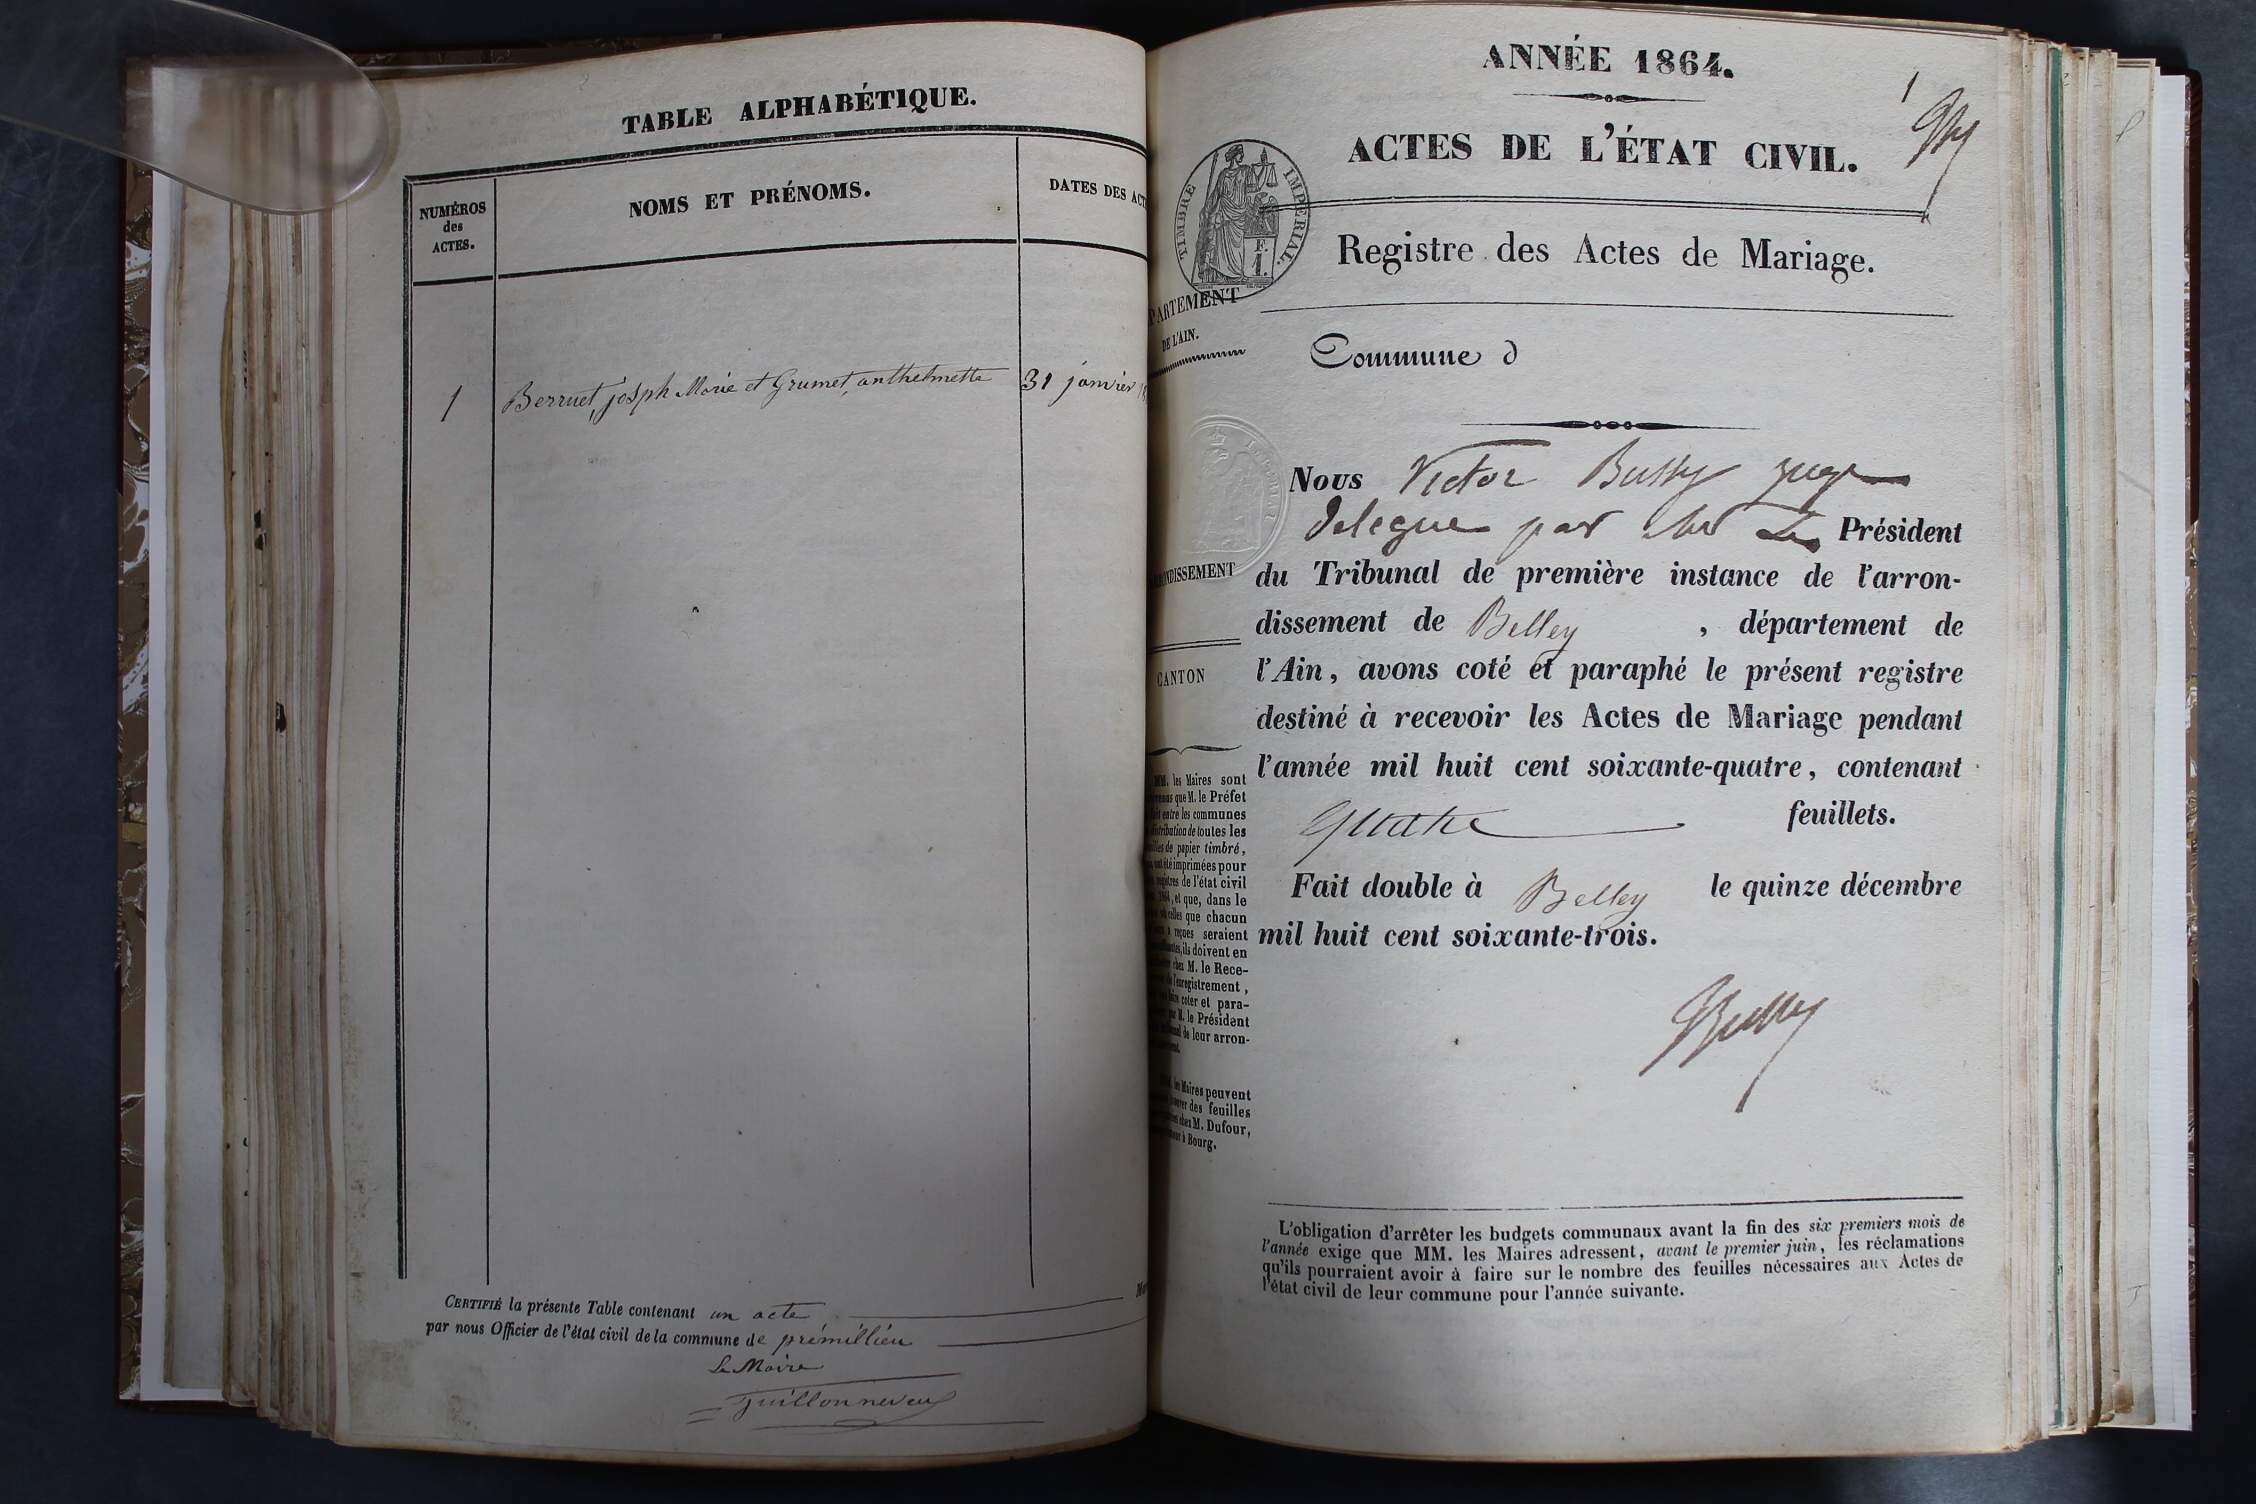 TABLE ALPHABÉTIQUE.
NUMÉROS
des
ACTES.
NOMS ET PRÉNOMS.
DATES DES ACT
1
Berruet, joseph Marie et Grumet, anthelmette
31 janvier
CERTIFIÉ la présente Table contenant un acte
par nous Officier de l'état civil de la commune de prémillieu
Le Maire
Guillon neveu
ANNÉE 1864.
1
ACTES DE L'ÉTAT CIVIL.
TIMBRE IMPÉRIAL.
F.
1.
Registre des Actes de Mariage.
PARTEMENT
DE L'AIN.
Commune d
Nous Victor Bussy juge
delegue par Le Président
du Tribunal de première instance de l'arron-
dissement de Belley , département de
l'Ain, avons coté et paraphé le présent registre
destiné à recevoir les Actes de Mariage pendant
l'année mil huit cent soixante-quatre, contenant
quatre feuillets.
Fait double à Belley le quinze décembre
mil huit cent soixante-trois.
Bussy
NDISSEMENT
CANTON
MM. les Maires sont
que M. le Préfet
entre les communes
distribution de toutes les
de papier timbré,
ont été imprimées pour
registres de l'état civil
1864, et que, dans le
celles que chacun
reçues seraient
ils doivent en
chez M. le Rece-
de l'enregistrement,
coter et para-
M. le Président
de leur arron-
les Maires peuvent
des feuilles
chez M. Dufour,
à Bourg.
L'obligation d'arrêter les budgets communaux avant la fin des six premiers mois de
l'année exige que MM. les Maires adressent, avant le premier juin, les réclamations
qu'ils pourraient avoir à faire sur le nombre des feuilles nécessaires aux Actes de
l'état civil de leur commune pour l'année suivante.